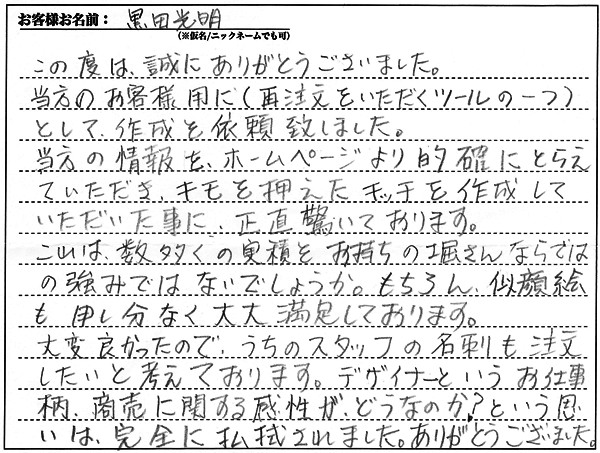 お客様お名前： 黒田光明
(※仮名/ニックネームでも可)
この度は、誠にありがとうございました。
当方のお客様用に(再注文をいただくツールの一つ)
として、作成を依頼致しました。
当方の情報を、ホームページより的確にとらえ
ていただき、キモを押えたキッチを作成して
いただいた事に、正直驚いております。
これは、数多くの実積をお持ちの堀さんならでは
の強みではないでしょうか。もちろん、似顔絵
も申し分なく大大満足しております。
大変良かったので、うちのスタッフの名刺も注文
したいと考えております。デザイナーというお仕事
柄、商売に関する感性が、どうなのか?という思
いは、完全に払拭されました。ありがとうございました。